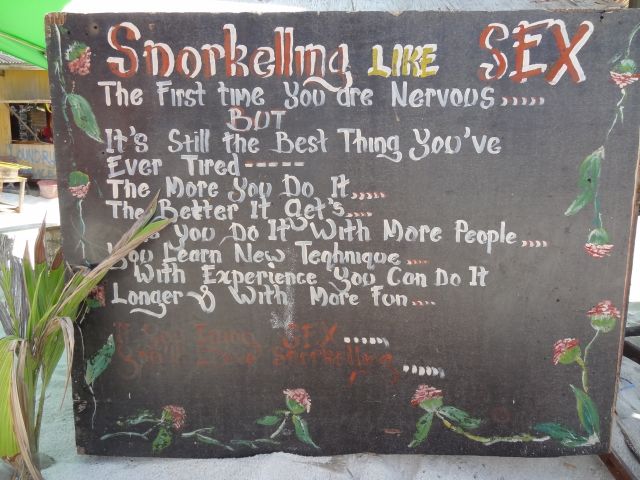 Snorkelling LIKE SEX
The First time You are Nervous.....
BUT
It's Still the Best Thing You've
Ever Tired-----
The More You Do It.....
The Better It Get's....
You Do It With More People....
You Learn New Teqhnique....
With Experience You Can Do It
Longer & With More Fun....
If You SEX.....
You'll Love Snorkelling.....